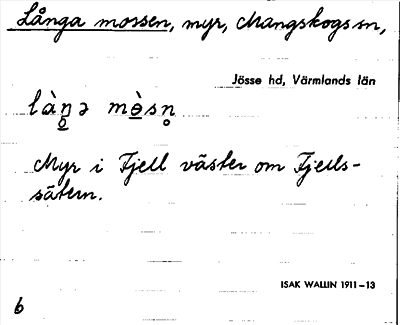 Långa mossen, myr, Mangskogs sn,
Jösse hd, Värmlands län
Myr i Fjell väster om Fjells-
sätern.
ISAK WALLIN 1911–13
6